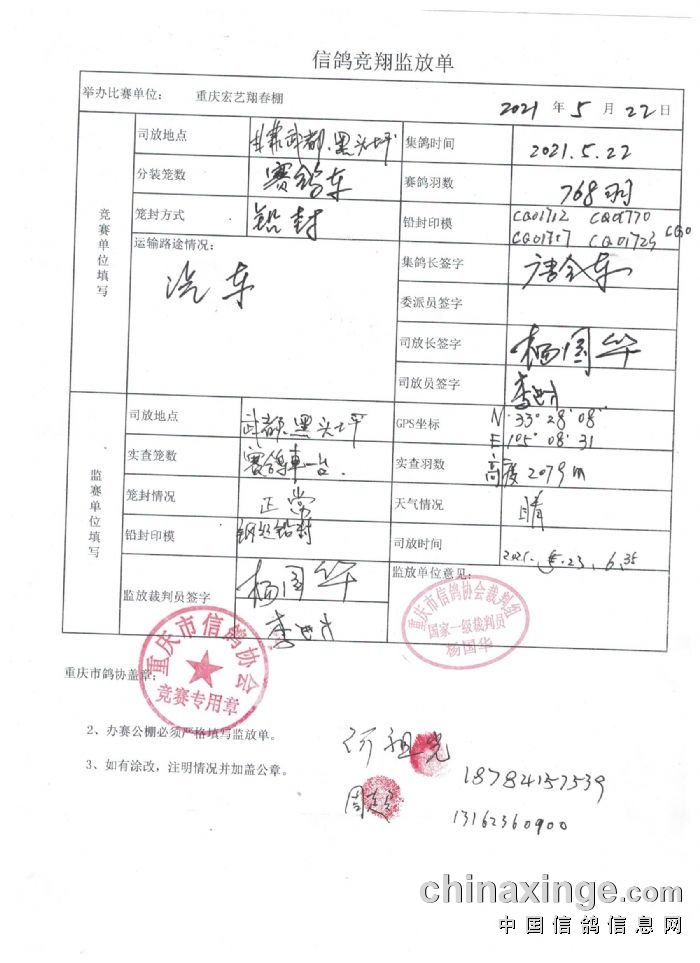 信鸽竞翔监放单
举办比赛单位： 重庆宏艺翔春棚 2021 年 5 月 22 日
竞赛单位填写
司放地点 甘肃武都.黑头坪 集鸽时间 2021.5.22
分装笼数 赛鸽车 赛鸽羽数 768羽
笼封方式 铅封 铅封印模 CQ01712 CQ01770
CQ01717 CQ01723 CQ0
运输路途情况： 汽车
集鸽长签字 唐全东
委派员签字
司放长签字 杨国华
司放员签字
监赛单位填写
司放地点 武都.黑头坪 GPS坐标 N·33°28′08″
E105°08′31
实查笼数 赛鸽車一台. 实查羽数 高度2079m
笼封情况 正常 天气情况 晴
铅封印模 钢丝铅封 司放时间 2021.5.23.6.35
监放裁判员签字 杨国华
监放单位意见：
重庆市信鸽协会裁判组
国家一级裁判员
杨国华
重庆市信鸽协会
竞赛专用章
重庆市鸽协盖章：
2、办赛公棚必须严格填写监放单。
3、如有涂改，注明情况并加盖公章。
祖光 18784157539
周 13162360900
chinaxinge.com
中国信鸽信息网